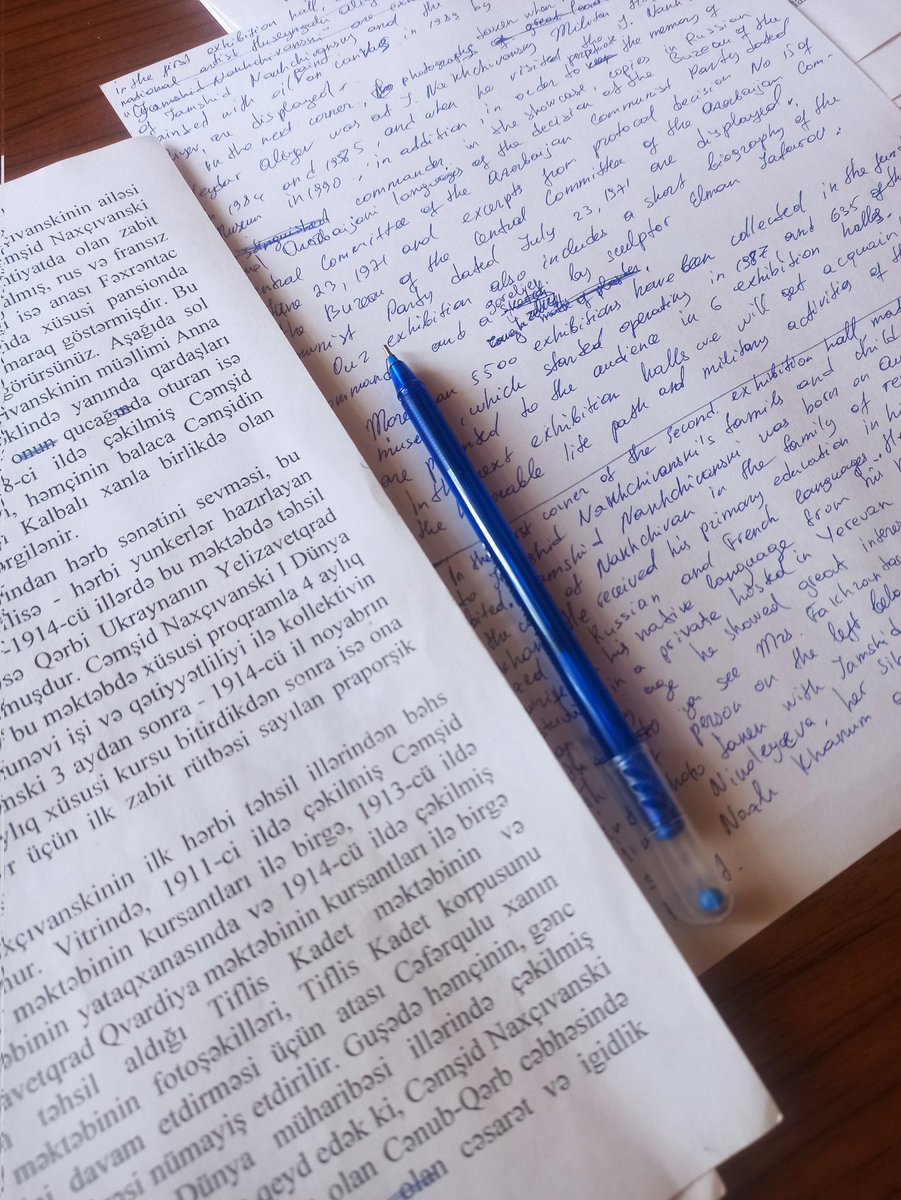 in the first exhibition hall,
national artist Huseyngulu Aliyev
"Jamshid Nakhchivanski
of Jamshid Nakhchivansky and the
painted with oil on canvas in 1983 by
Aliyev, are displayed.
In the next corner, photographs taken when
Heydar Aliyev was at J. Nakhchivansky Military
in 1984 and 1985, and when he visited the J. Nakh
Museum in 1990, in addition, in order to perpetuate the memory of
commander, in the showcase, copies in Russian
and Azerbaijani languages of the decision of the Buzeau of the
Central Committee of the Azerbaijan Communist Party dated
June 23, 1971 and excerpts from protocol decision No 15 of
the Buzeau of the Central Committee of the Azerbaijan Com-
munist Party dated July 23, 1971 are displayed.
Our exhibition also includes a short biography of the
commander and a by sculptor Elman Jafarov.
More than 5500 exhibitions have been collected in the fund
museum, which started operating in 1987 and 635 of the
are presented to the audience in 6 exhibition halls.
In the next exhibition halls we will get acquain
the honorable life path and military activities of the
In the first corner of the second exhibition hall, mat
to Jamshid Nakhchivanski's family and child
Jamshid Nakhchivanski was born on Au
the city of Nakhchivan in the family of re
He received his primary education in h
Russian and French languages. He
his native language from his
in a private hostel in Yerevan
age he showed great interes
you see Mrs. Fakhrantaj
person on the left below
photo taken with Jamshid
Ninoleyeva, her sib
Nazli Khanum
çıvanskinin ailəsi
mşid Naxçıvanski
tiyatda olan zabit
almış, rus və fransız
i isə anası Fəxrəntac
ida xüsusi pansionda
maraq göstərmişdir. Bu
görürsünüz. Aşağıda sol
ıvanskinin müəllimi Anna
əklində yanında qardaşları
onun qucağında oturan isə
8-ci ildə çəkilmiş Cəmşid
i, həmçinin balaca Cəmşidin
Kalbalı xanla birlikdə olan
ərgilənir.
ından hərb sənətini sevməsi, bu
flisə - hərbi yunkerlər hazırlayan
-1914-cü illərdə bu məktəbdə təhsil
sə Qərbi Ukraynanın Yelizavetqrad
muşdur. Cəmşid Naxçıvanski I Dünya
bu məktəbdə xüsusi proqramla 4 aylıq
unəvi işi və qətiyyətliliyi ilə kollektivin
nski 3 aydan sonra - 1914-cü il noyabrın
ylıq xüsusi kursu bitirdikdən sonra isə ona
r üçün ilk zabit rütbəsi sayılan praporşik
xçıvanskinin ilk hərbi təhsil illərindən bəhs
nur. Vitrində, 1911-ci ildə çəkilmiş Cəmşid
məktəbinin kursantları ilə birgə, 1913-cü ildə
əbinin yataqxanasında və 1914-cü ildə çəkilmiş
avetqrad Qvardiya məktəbinin kursantları ilə birgə
təhsil aldığı Tiflis Kadet məktəbinin və
məktəbinin fotoşəkilləri, Tiflis Kadet korpusunu
ni davam etdirməsi üçün atası Cəfərqulu xanın
əsi nümayiş etdirilir. Guşədə həmçinin, gənc
Dünya müharibəsi illərində çəkilmiş
qeyd edək ki, Cəmşid Naxçıvanski
olan Cənub-Qərb cəbhəsində
olan cəsarət və igidlik